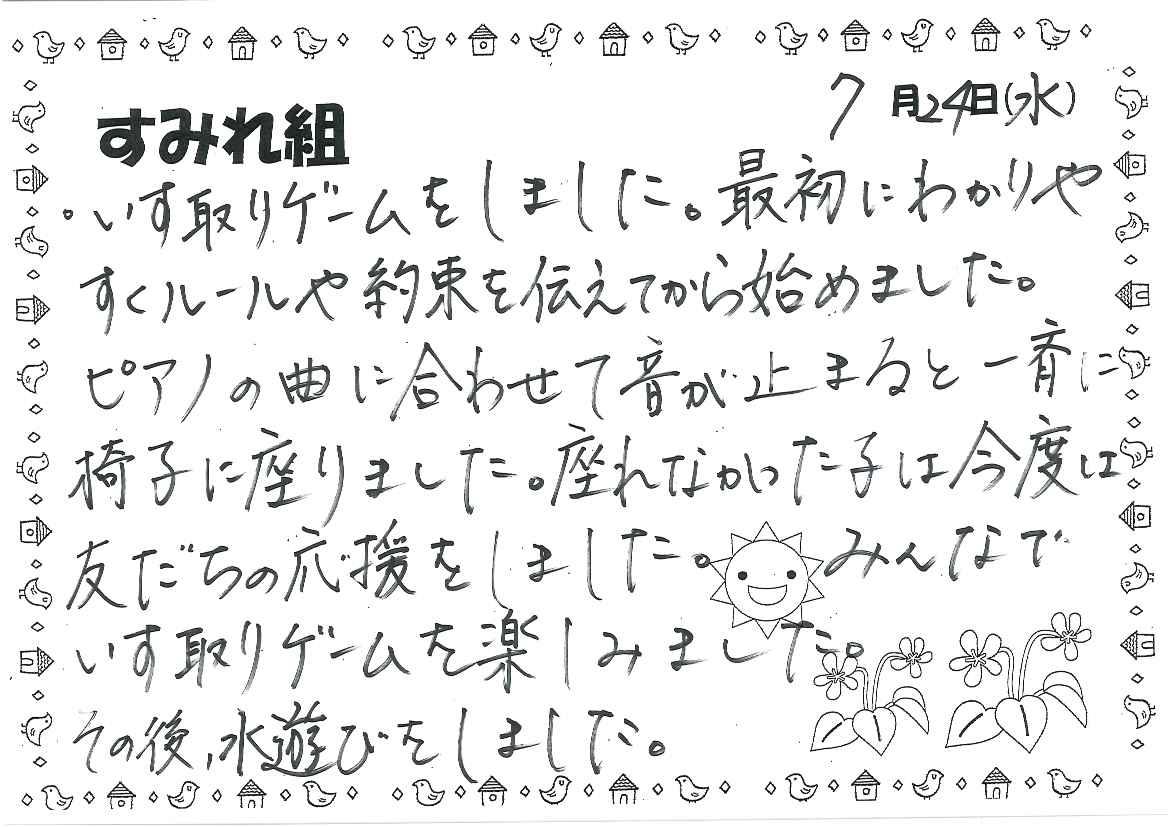 7月24日(水)
すみれ組
・いす取りゲームをしました。最初にわかりや
すくルールや約束を伝えてから始めました。
ピアノの曲に合わせて音が止まると一斉に
椅子に座りました。座れなかった子は今度は
友だちの応援をしました。みんなで
いす取りゲームを楽しみました。
その後、水遊びをしました。